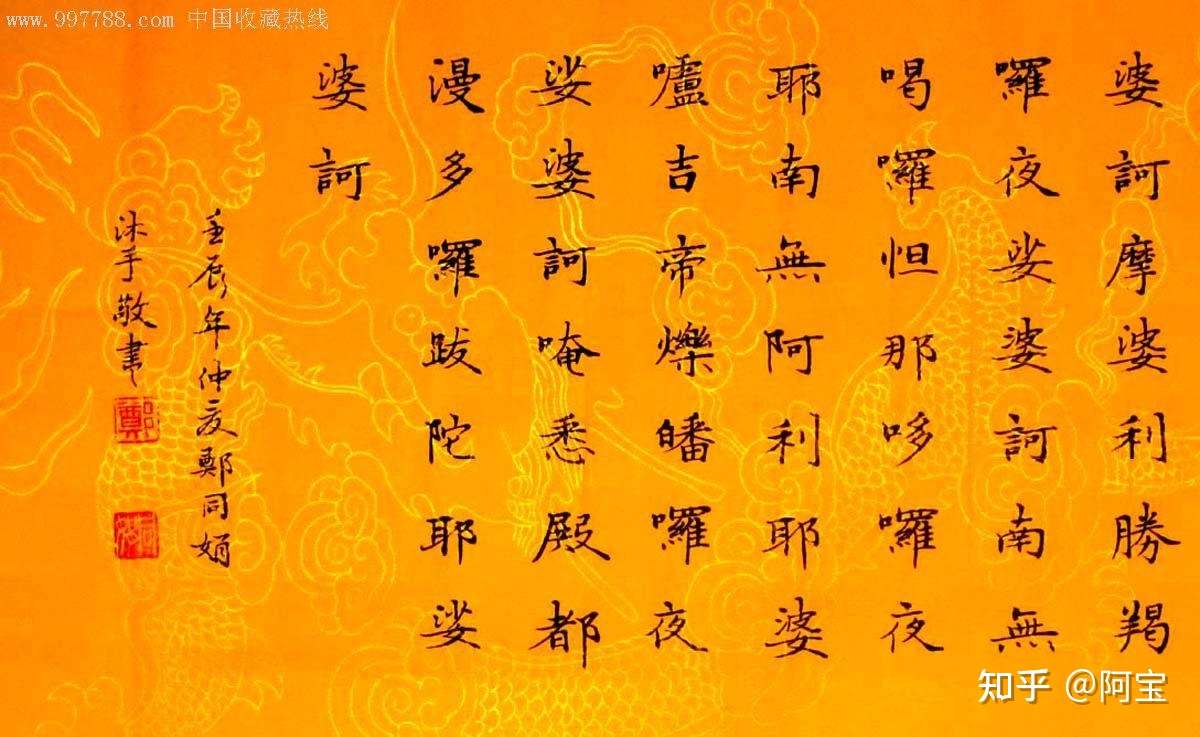 www.997788.com 中国收藏热线
婆訶摩婆利勝羯
囉夜娑婆訶南無
喝囉怛那哆囉夜
耶南無阿利耶婆
嚧吉帝爍皤囉夜
娑婆訶唵悉殿都
漫多囉跋陀耶娑
婆訶
壬辰年仲夏鄭同娟
沐手敬書
知乎 @阿宝